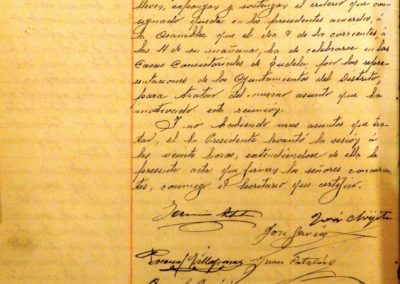 lleven, expongan y sostengan el criterio que con-
signado queda en los precedentes acuerdos, á
la Asamblea que el dia 4 de los corrientes á
las 11 de su mañana, ha de celebrarse en las
Casas Consistoriales de Tudela por los repre-
sentaciones de los Ayuntamientos del Distrito,
para tratar del mismo asunto que ha
motivado esta reunión.
Y no habiendo mas asuntos que tra-
tar, el Sr. Presidente levantó la sesión á
las veinte horas, extendiéndose de ella la
presente acta que forman los señores concurren-
tes, conmigo el Secretario que certifico.
José
García
Villafranca Juan Catalán